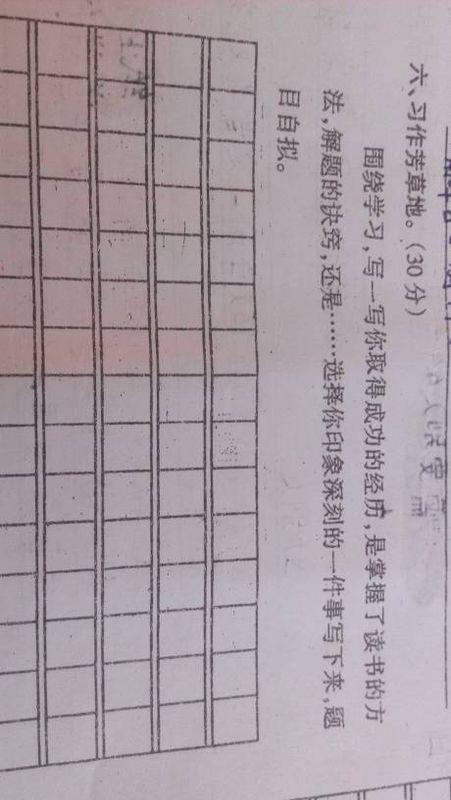 六、习作芳草地。（30 分）
围绕学习，写一写你取得成功的经历，是掌握了读书的方
法，解题的诀窍，还是……选择你印象深刻的一件事写下来，题
目自拟。